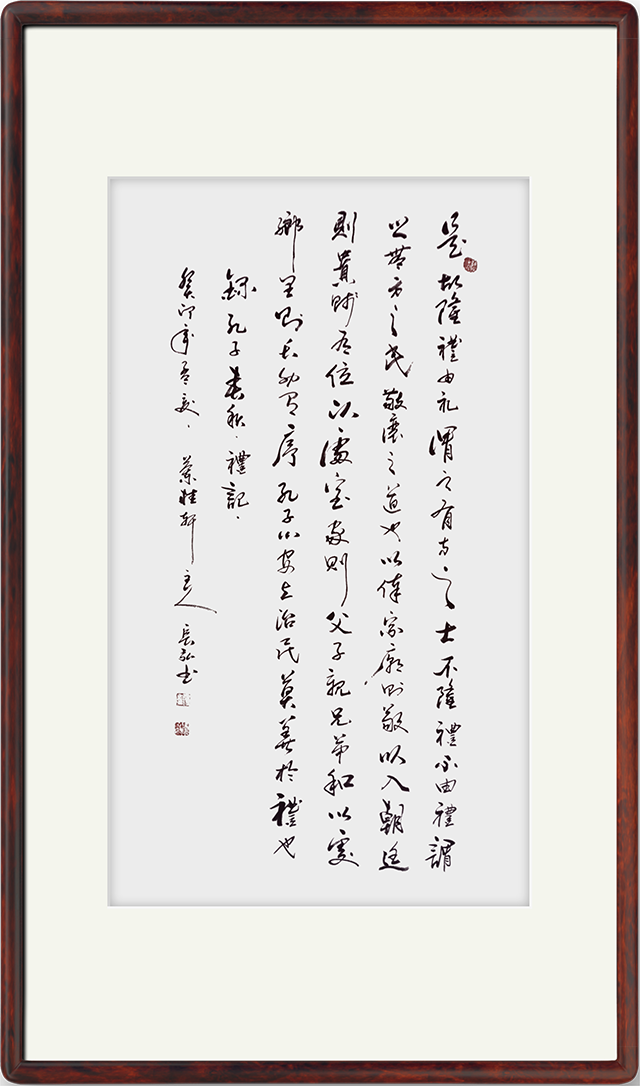 是故隆禮由礼謂之有方之士不隆禮不由禮謂
之無方之民敬讓之道也以奉宗廟則敬以入朝廷
則貴賤有位以處室家則父子親兄弟和以處
鄉里則長幼有序孔子曰安上治民莫善於禮也
錄孔子春秋禮記
癸卯年孟夏 蘭桂軒主人 長弘书